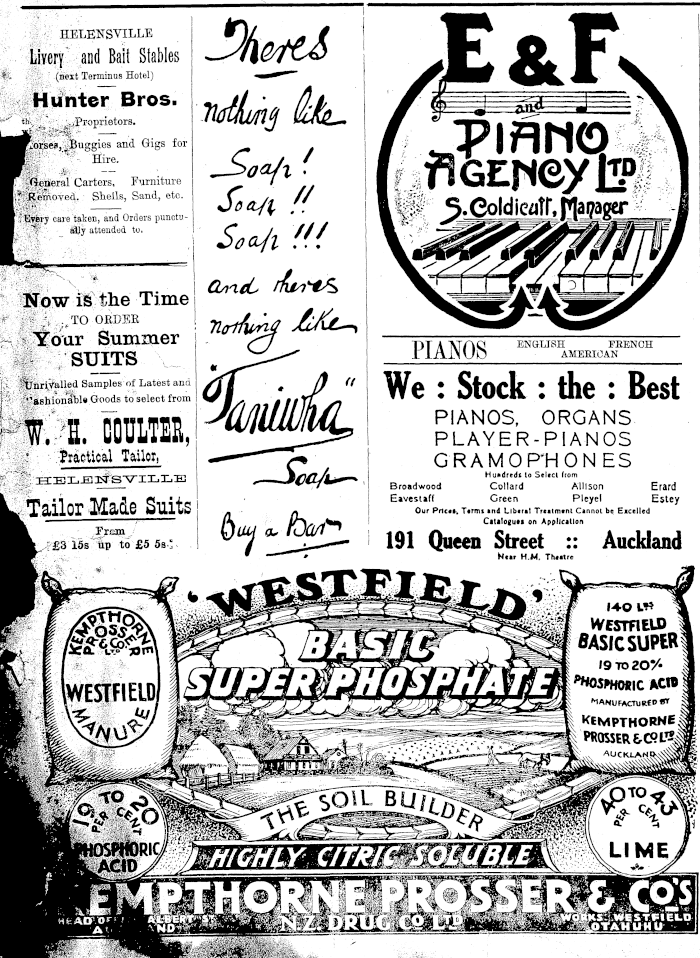 HELENSVILLE
Livery and Bait Stables
(next Terminus Hotel)
Hunter Bros.
Proprietors.
Horses, Buggies and Gigs for
Hire.
General Carters, Furniture
Removed. Shells, Sand, etc.
Every care taken, and Orders punctu-
ally attended to.
Now is the Time
TO ORDER
Your Summer
SUITS
Unrivalled Samples of Latest and
Fashionable Goods to select from
W. H. COULTER,
Practical Tailor,
HELENSVILLE
Tailor Made Suits
From
£3 15s up to £5 5s.
Theres
nothing like
Soap!
Soap!!
Soap!!!
and theres
nothing like
"Taniwha"
Soap
Buy a Bar
E & F
and
PIANO
AGENCY LTD
S. Coldicutt, Manager
PIANOS ENGLISH FRENCH
AMERICAN
We : Stock : the : Best
PIANOS, ORGANS
PLAYER-PIANOS
GRAMOPHONES
Hundreds to Select from
Broadwood Collard Allison Erard
Eavestaff Green Pleyel Estey
Our Prices, Terms and Liberal Treatment Cannot be Excelled
Catalogues on Application
191 Queen Street :: Auckland
Near H.M. Theatre
'WESTFIELD'
BASIC
SUPER PHOSPHATE
KEMPTHORNE
PROSSER
& CO'S
LTD
WESTFIELD
MANURE
140 LBS
WESTFIELD
BASIC SUPER
19 TO 20%
PHOSPHORIC ACID
MANUFACTURED BY
KEMPTHORNE
PROSSER & CO LTD
AUCKLAND
19 TO 20
PER CENT
PHOSPHORIC
ACID
THE SOIL BUILDER
40 TO 43
PER CENT
LIME
HIGHLY CITRIC SOLUBLE
KEMPTHORNE PROSSER & CO'S
HEAD ALBERT ST
N.Z. DRUG CO LTD
WORKS. WESTFIELD
OTAHUHU